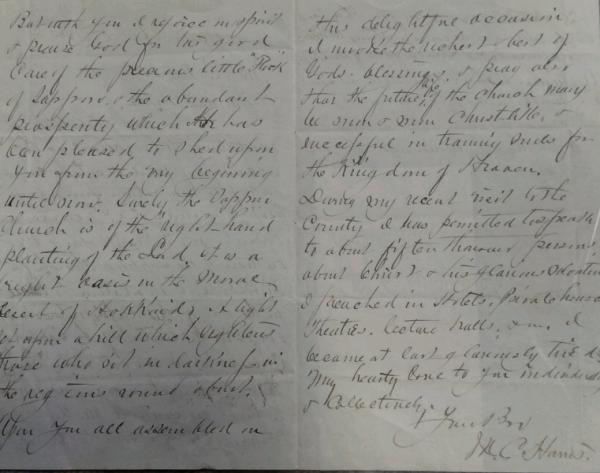 But with you I rejoice in spirit
& praise God for his good
care of the precious little "Flock"
of Sapporo & the abundant
prosperity which He has
been pleased to shed upon
you from the very beginning
until now. Surely the Sapporo
Church is of the right hand
planting of the Lord. It is a
bright oasis in the Moral
desert of Hokkaido. A light
set upon a hill which enlightens
those who sit in darkness in
the regions round about.
Upon you all assembled on
this delightful occasion
I invoke the richest & best of
Gods blessings. & pray also
that the future life of the Church may
be more & more Christ like, &
successful in training souls for
the Kingdom of Heaven.
During my recent visit to the
Country I was permitted to speak
to about fifteen thousand persons
about Christ & his glorious salvation
I preached in Hotels, Private houses
Theatres. lecture halls, &
became at last gloriously tired
My hearty love to you individually
& Collectively
Your Bro
C. Harris.